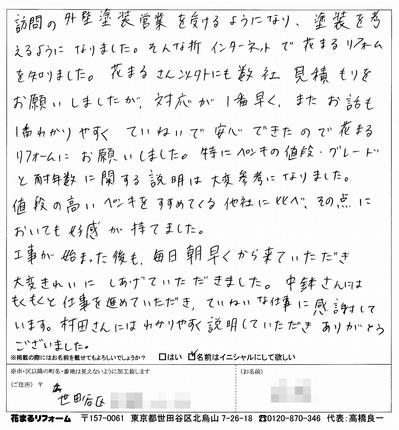 訪問の外壁塗装営業を受けるようになり、塗装を考
えるようになりました。そんな折インターネットで花まるリフォーム
を知りました。花まるさん以外にも数社見積もりを
お願いしましたが、対応が1番早く、またお話も
1番わかりやすくていねいで安心できたので花まる
リフォームにお願いしました。特にペンキの値段・グレード
と耐年数に関する説明は大変参考になりました。
値段の高いペンキをすすめてくる他社に比べ、その点に
おいても好感が持てました。
工事が始まった後も、毎日朝早くから来ていただき
大変きれいにしあげていただきました。中鉢さんは
もくもくと仕事を進めていただき、ていねいな仕事に感謝して
います。村田さんにはわかりやすく説明していただきありがとう
ございました。
※掲載の際にはお名前を載せてもよろしいでしょうか? □はい ☑名前はイニシャルにして欲しい
※市・区以降の町名・番地は見えないように加工致します
(ご住所) 〒
(お名前)
世田谷区
花まるリフォーム 〒157-0061 東京都世田谷区北烏山7-26-18 ☎0120-870-346 代表:高橋良一